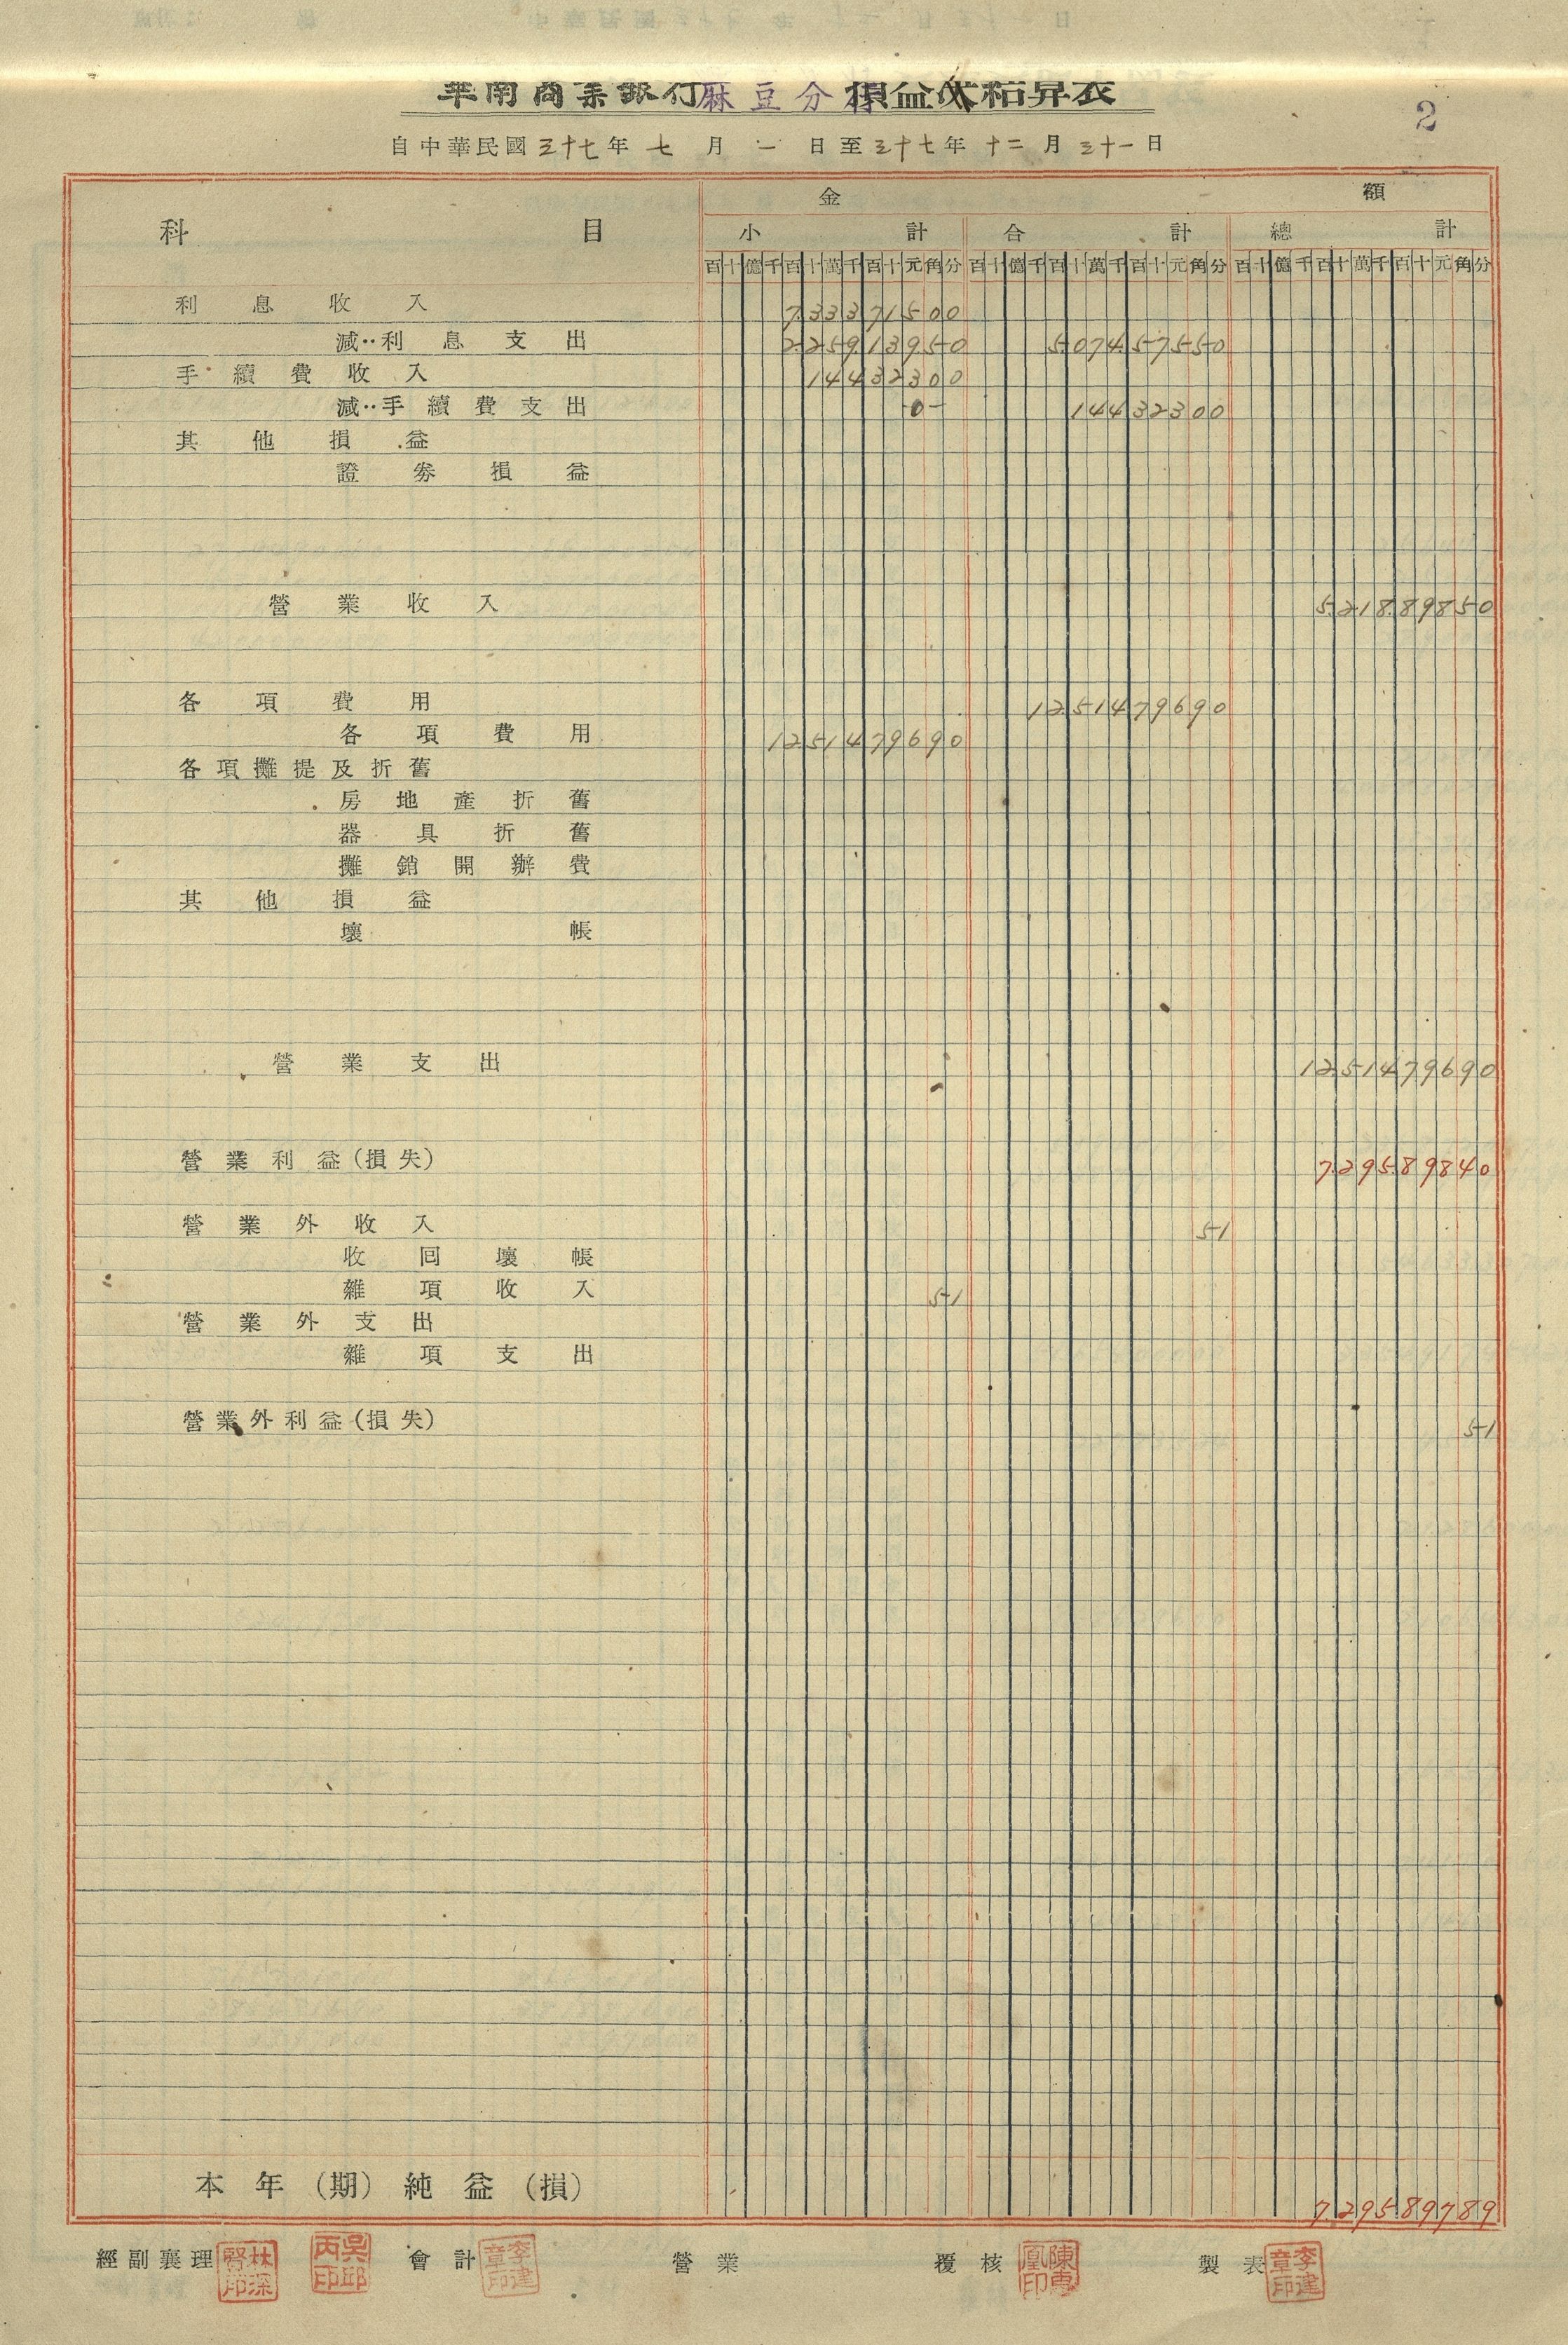 華南商業銀行麻豆分行損益決結算表
2
自中華民國三十七年七月一日至三十七年十二月三十一日
科目 金額
小計 合計 總計
百十億千百十萬千百十元角分 百十億千百十萬千百十元角分 百十億千百十萬千百十元角分
利息收入 733371500
減:利息支出 225913950 507457550
手續費收入 14432300
減:手續費支出 -0- 14432300
其他損益
證券損益
營業收入 521889850
各項費用 1251479690
各項費用 1251479690
各項攤提及折舊
房地產折舊
器具折舊
攤銷開辦費
其他損益
壞帳
營業支出 1251479690
營業利益(損失) 729589840
營業外收入 51
收回壞帳
雜項收入 51
營業外支出
雜項支出
營業外利益(損失) 51
本年(期)純益(損) 729589789
經副襄理 會計 營業 覆核 製表